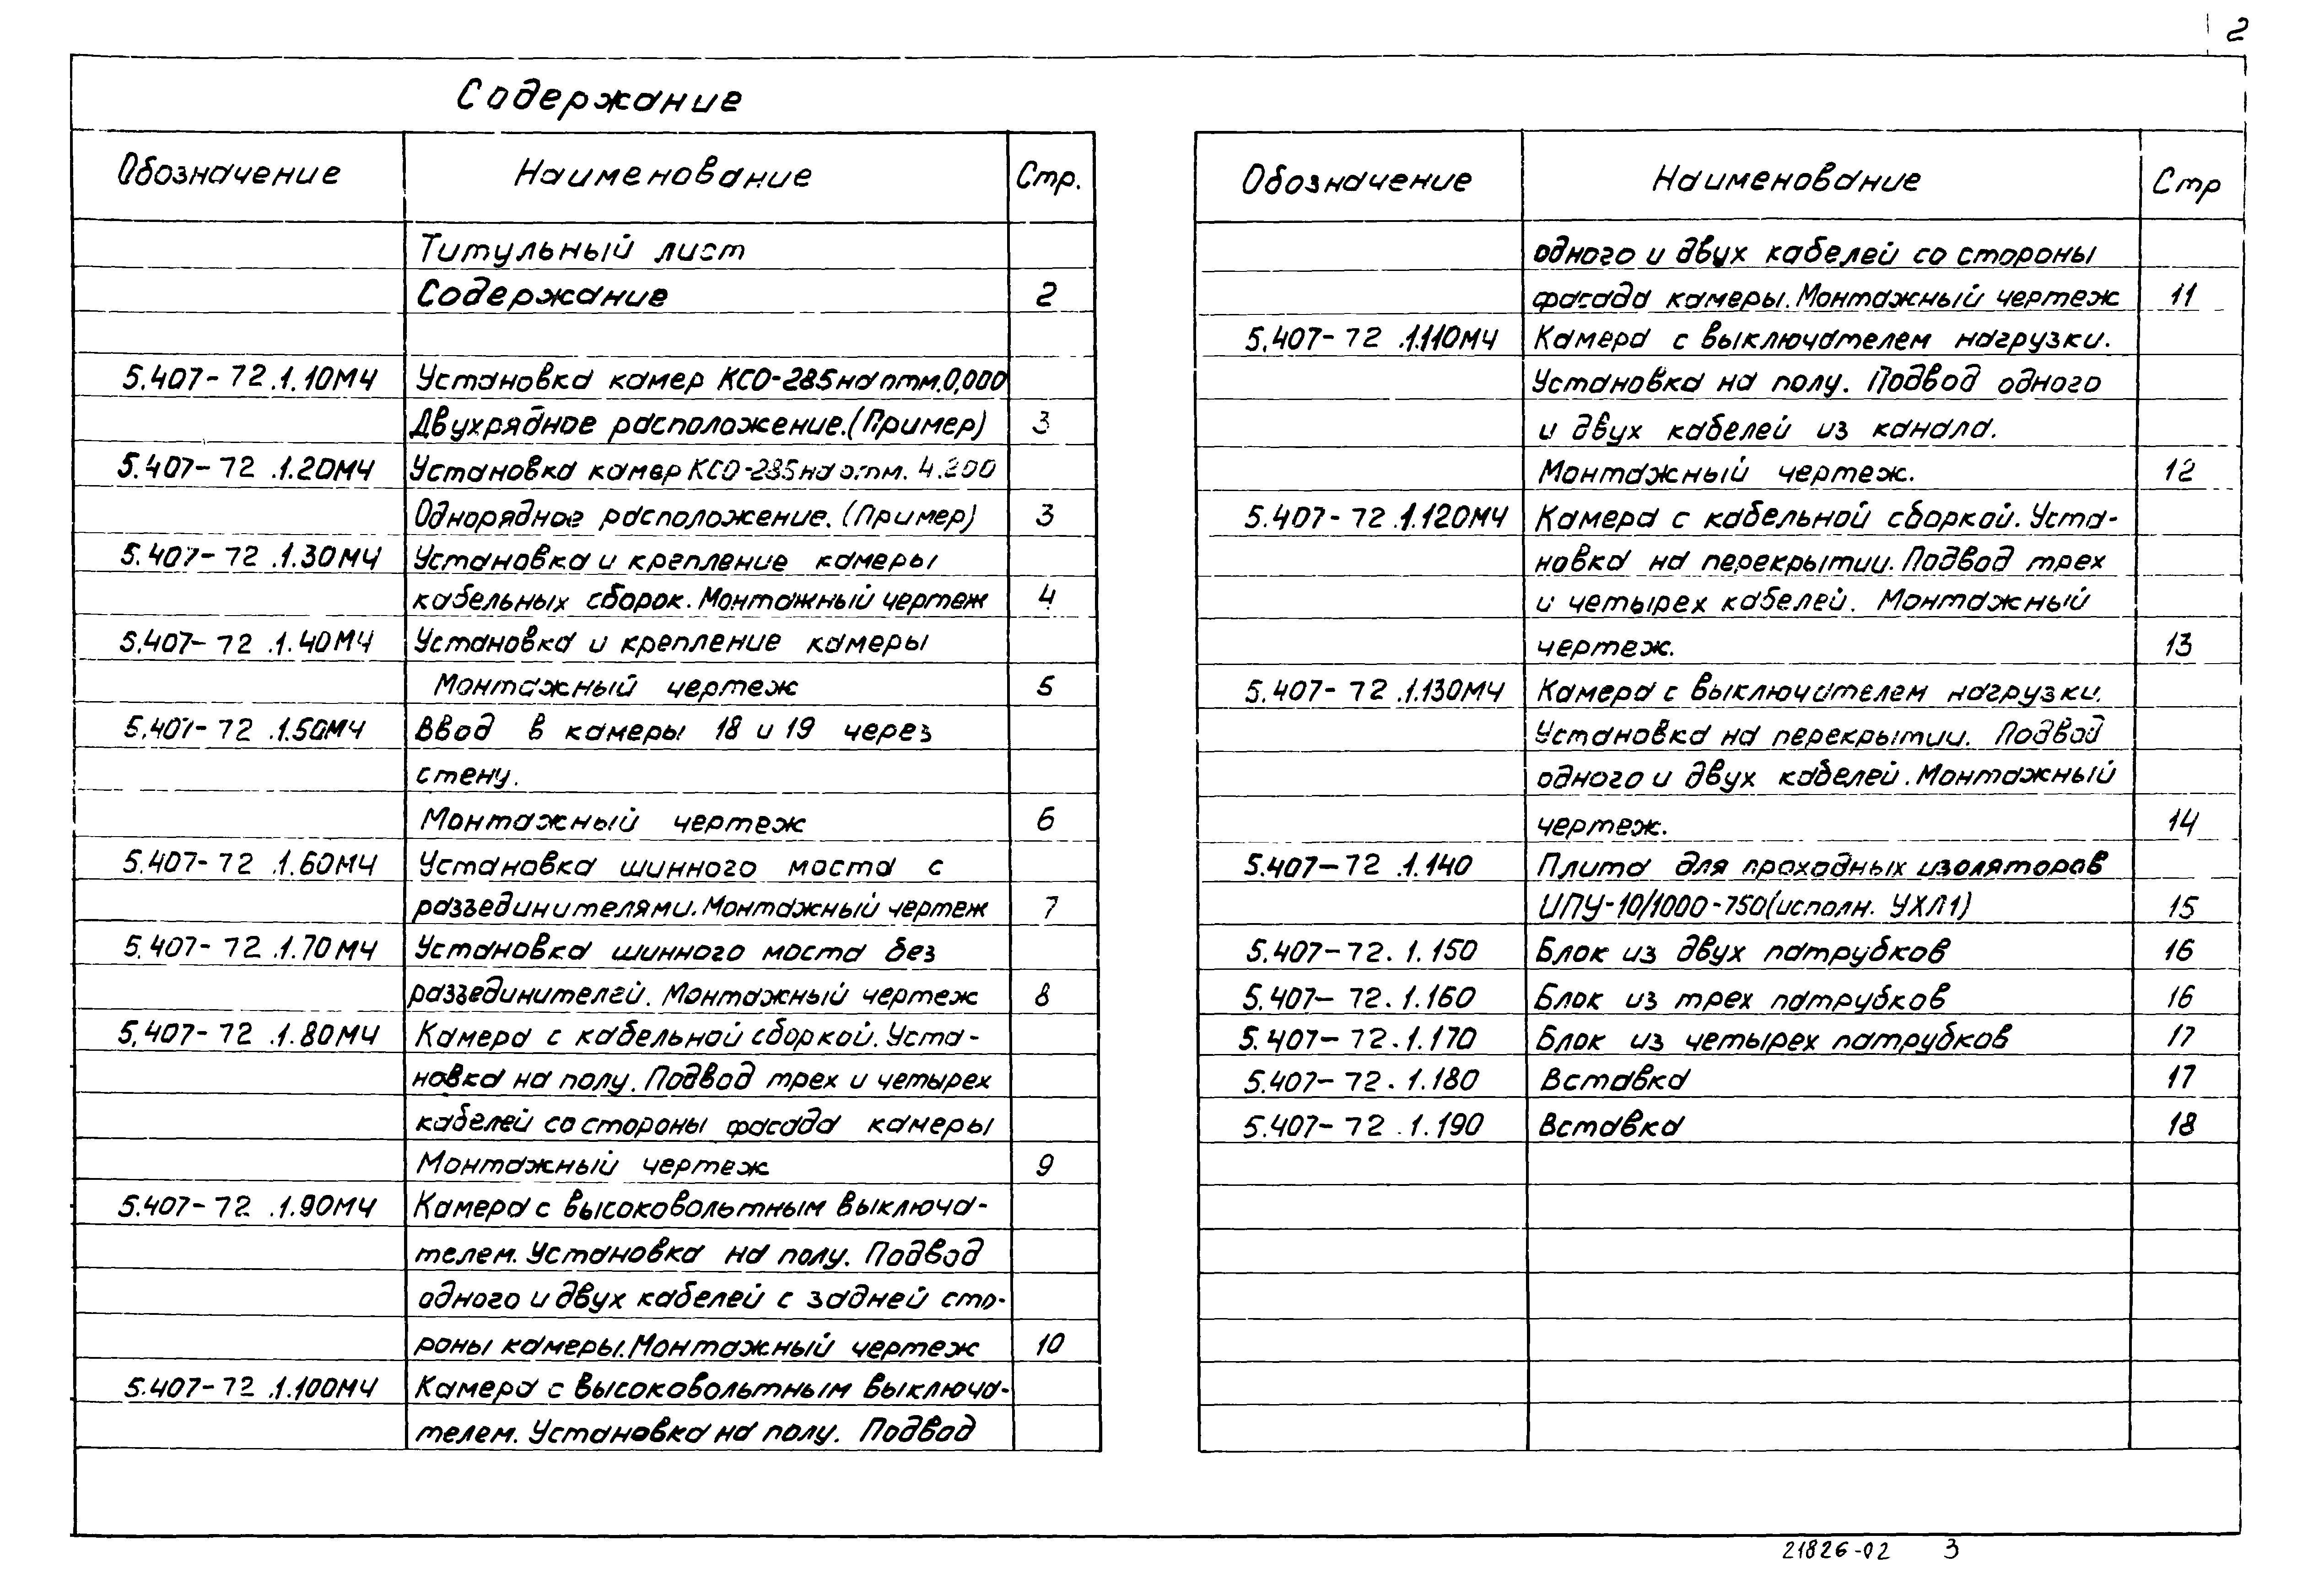 2
Содержание
Обозначение Наименование Стр.
Титульный лист
Содержание 2
5.407-72.1.10МЧ Установка камер КСО-285 на отм.0,000
Двухрядное расположение.(Пример) 3
5.407-72.1.20МЧ Установка камер КСО-285 на отм. 4.200
Однорядное расположение.(Пример) 3
5.407-72.1.30МЧ Установка и крепление камеры
кабельных сборок. Монтажный чертеж 4
5.407-72.1.40МЧ Установка и крепление камеры
Монтажный чертеж 5
5.407-72.1.50МЧ Ввод в камеры 18 и 19 через
стену.
Монтажный чертеж 6
5.407-72.1.60МЧ Установка шинного моста с
разъединителями. Монтажный чертеж 7
5.407-72.1.70МЧ Установка шинного моста без
разъединителей. Монтажный чертеж 8
5.407-72.1.80МЧ Камера с кабельной сборкой. Уста-
новка на полу. Подвод трех и четырех
кабелей со стороны фасада камеры
Монтажный чертеж 9
5.407-72.1.90МЧ Камера с высоковольтным выключа-
телем. Установка на полу. Подвод
одного и двух кабелей с задней сто-
роны камеры. Монтажный чертеж 10
5.407-72.1.100МЧ Камера с высоковольтным выключа-
телем. Установка на полу. Подвод
Обозначение Наименование Стр
одного и двух кабелей со стороны
фасада камеры. Монтажный чертеж 11
5.407-72.1.110МЧ Камера с выключателем нагрузки.
Установка на полу. Подвод одного
и двух кабелей из канала.
Монтажный чертеж. 12
5.407-72.1.120МЧ Камера с кабельной сборкой. Уста-
новка на перекрытии. Подвод трех
и четырех кабелей. Монтажный
чертеж. 13
5.407-72.1.130МЧ Камера с выключателем нагрузки.
Установка на перекрытии. Подвод
одного и двух кабелей. Монтажный
чертеж. 14
5.407-72.1.140 Плита для проходных изоляторов
ИПУ-10/1000-750(исполн. УХЛ1) 15
5.407-72.1.150 Блок из двух патрубков 16
5.407-72.1.160 Блок из трех патрубков 16
5.407-72.1.170 Блок из четырех патрубков 17
5.407-72.1.180 Вставка 17
5.407-72.1.190 Вставка 18
21826-02 3